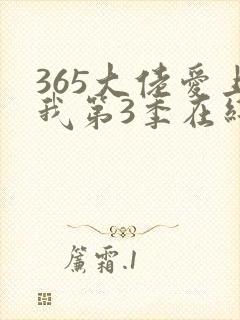 365大佬爱上
我第3季在线
簾霜.1